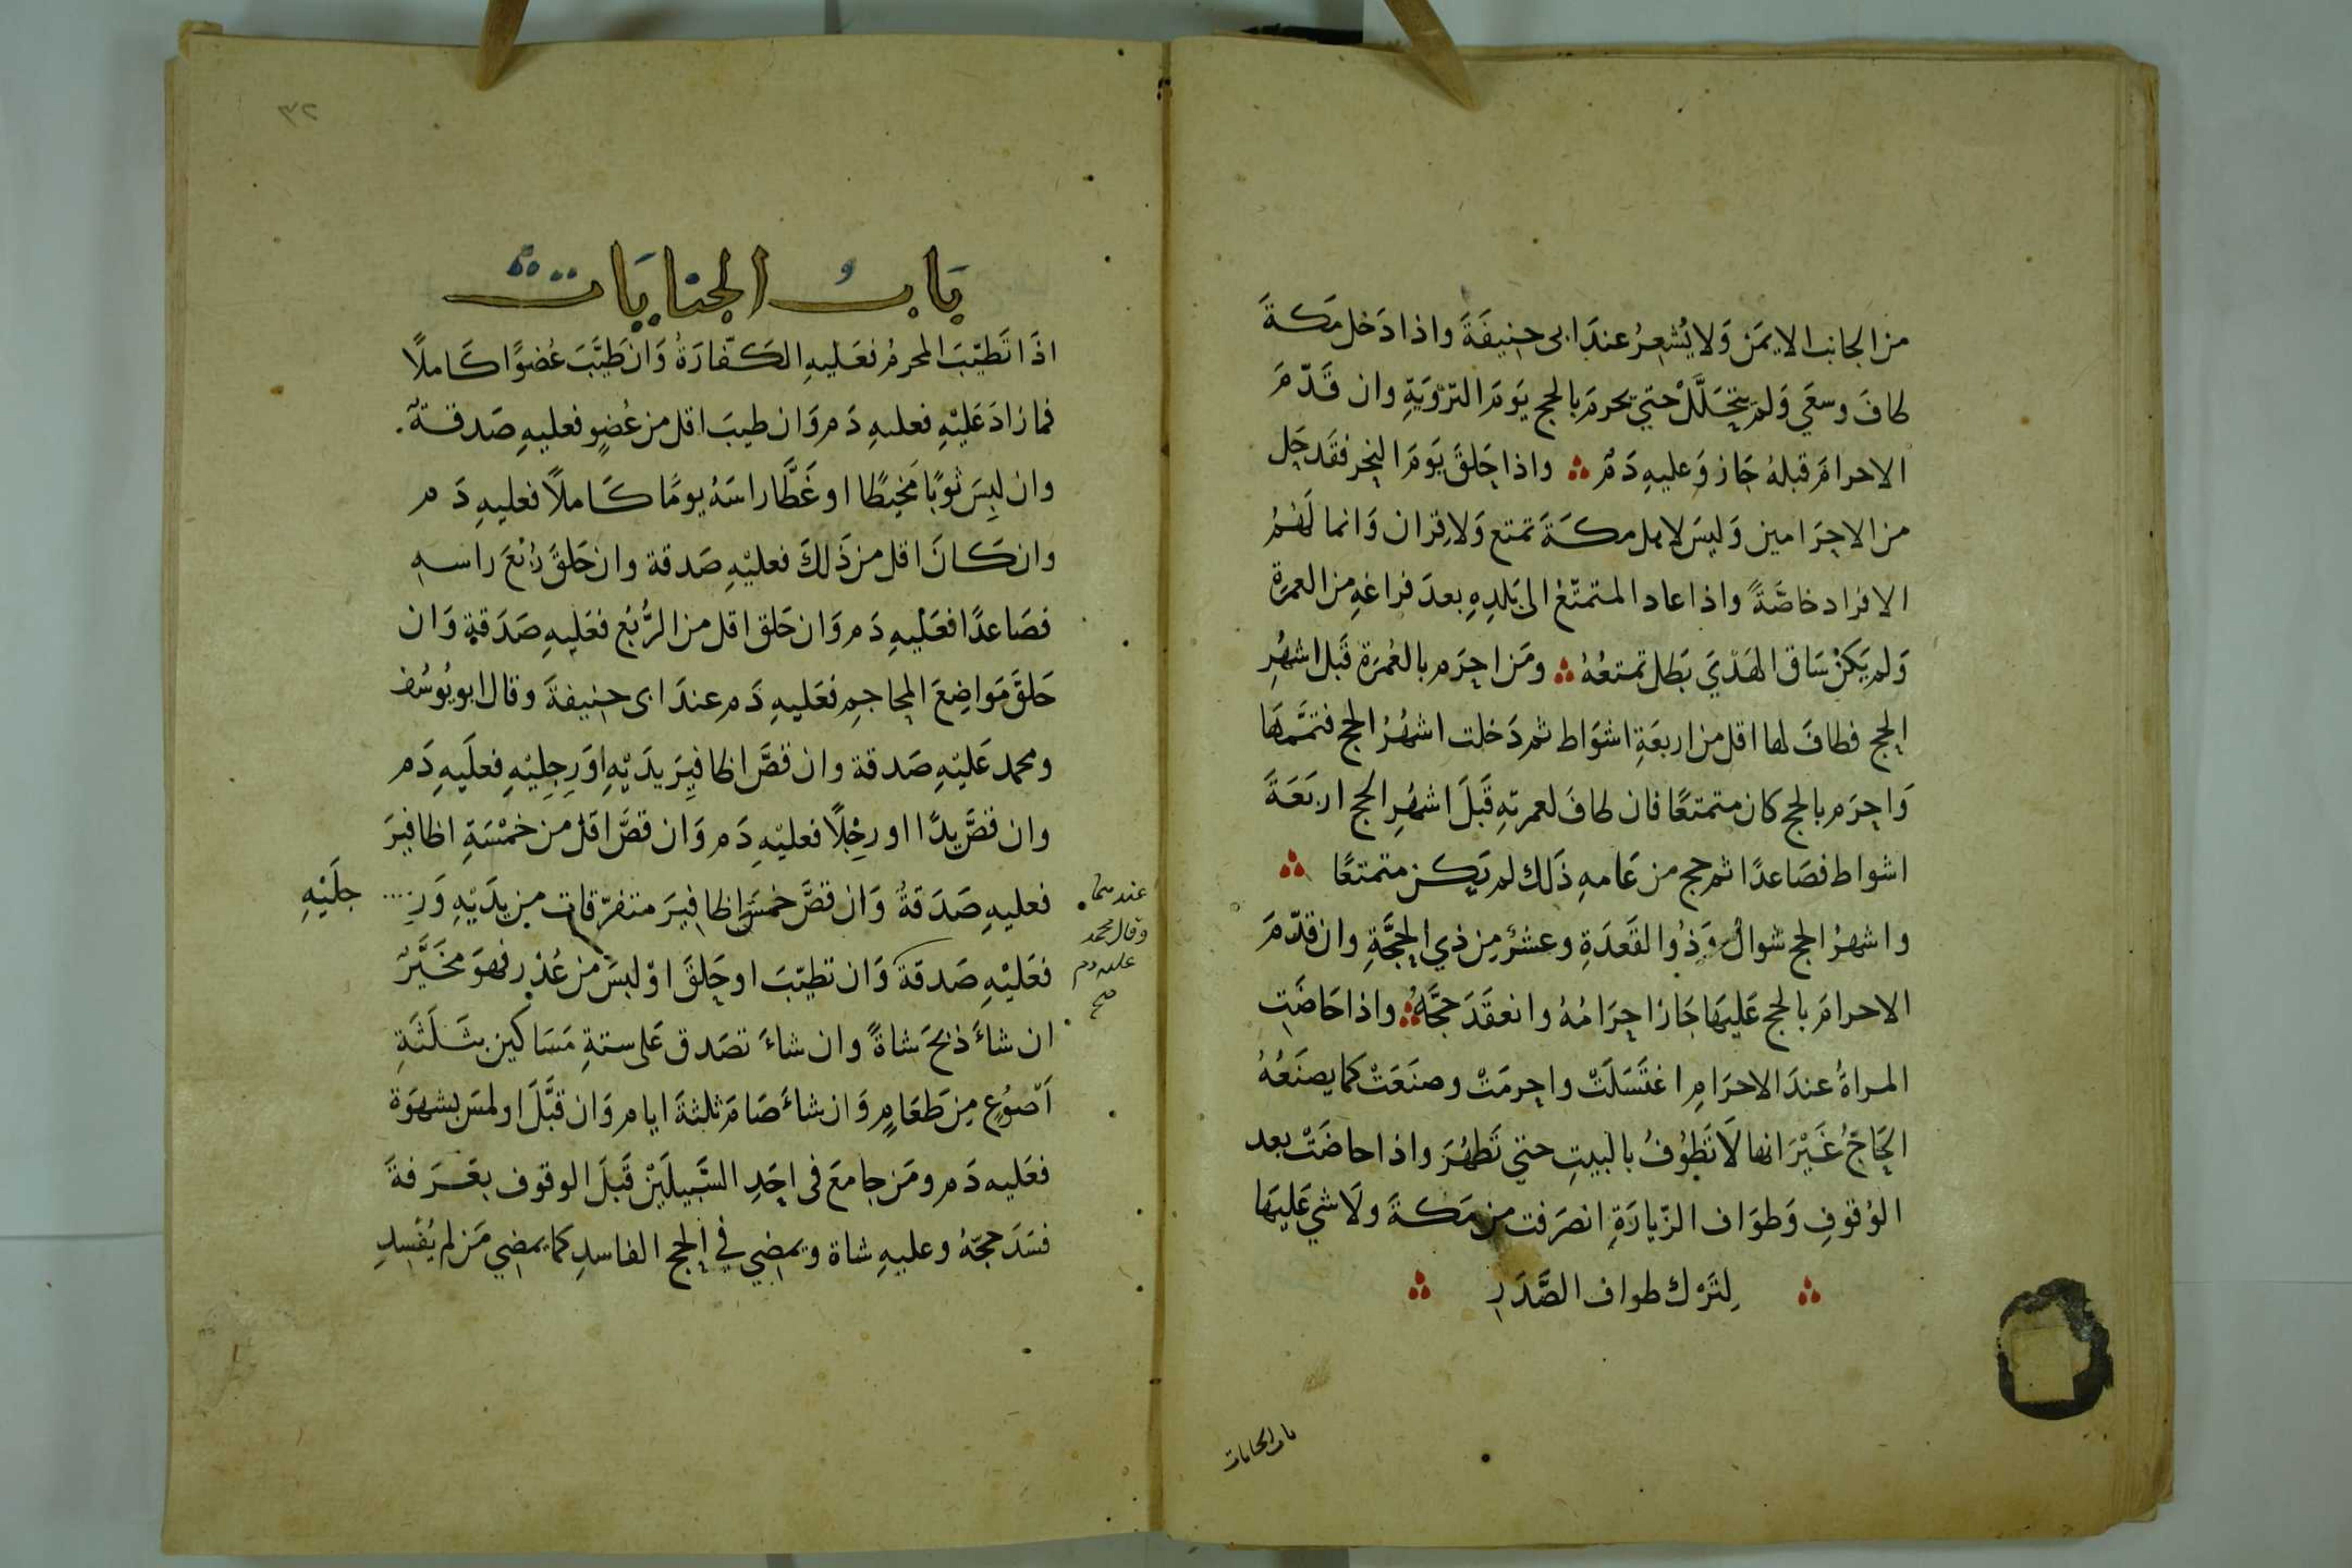 من الجانب الايمَن وَلا يُشعِرُ عندَ ابى حنيفَةَ واذا دَخل مَكةَ
طافَ وسعَي وَلم يتحَلَّلْ حتي يحرمَ بالحج يَومَ التّرْوَيَةِ وان قَدّمَ
الاحرامَ قبلهُ جَاز وَعليهِ دَمٌ واذا حَلقَ يَومَ النحر فقَد حَل
من الاحرَامين وَليسَ لاهل مكةَ تمتع وَلا قِران وَانما لَهُمُ
الافراد خاصَّةً واذا عاد المتمتّعُ الى بَلدِهِ بعدَ فراغهِ من العمرَة
وَلم يَكنْ سَاقَ الهَدْيَ بَطل تمتعُهُ ومَن احرَم بالعُمرَة قَبل اشهُرِ
الحج فطافَ لها اقل من اربعَةِ اشوَاط ثم دَخلت اشهُرُ الحج فتمَّمهَا
وَاحرَم بالحج كان متمتعًا فان طافَ لعمرتهِ قَبلَ اشهُرِ الحج اربَعَةَ
اشواط فصَاعدًا ثم حج من عَامهِ ذَلك لم يَكن متمتعًا
واشهرُ الحج شوالٌ وَذُوا القَعدَةِ وعشرٌ مِن ذي الحِجَّةِ وان قدّمَ
الاحرامَ بالحج عَليهَا جَازَ احرَامُهُ وانعقَدَ حَجَّهُ واذا حَاضَتِ
المراةُ عندَ الاحرَامِ اغتَسَلَتْ واحرمَتْ وصنَعَتْ كما يصنَعُهُ
الحَاجُّ غَيْرَ انها لَا تَطُوُفُ بالبيتِ حتي تَطهُرَ واذا حاضَتْ بعد
الوُقوفِ وَطوَاف الزّيارَةِ انصرَفت من مَكةَ ولَا شي عَليهَا
لِتَرْك طواف الصَّدَرِ
باب الجنايات
٣٢
بَابُ الجنايَات
اذَا تَطيّبَ المحرمُ فعَليهِ الكَفّارَةُ وَان طَيَّبَ عُضوًا كَاملًا
فما زادَ عَليْهِ فعليهِ دَم وَان طيبَ اقل من عُضوٍ فعليهِ صَدقةٌ
وان لبِسَ ثوبًا مَخيطًا او غَطَّا راسَهُ يومًا كَاملًا فعليهِ دَم
وان كَانَ اقل من ذَلكَ فعليْهِ صَدقة وان حَلقَ رُبْعَ راسهِ
فصَاعدًا فعَليْهِ دَم وَان حَلق اقل من الرُّبُعِ فعَليهِ صَدَقةٌ وَان
حَلقَ مَواضِعَ المحاجمِ فعَليهِ دَم عندَ ابى حنيفةَ وقال ابو يُوسُف
ومحمد عَليْهِ صَدقة وان قصَّ اظافيرَ يدَيْهِ اوَ رِجِليْهِ فعلَيهِ دَم
وان قصَّ يدًا او رِجْلًا فعليْهِ دَم وَان قصَّ اقل من خمْسَةِ اظافيرَ
فعليهِ صَدَقةٌ وَان قصَّ خمسَ اظافيرَ متفرّقات من يدَيْهِ وَرِ جلَيْهِ
فعَليْهِ صَدقةٌ وَان تطيّبَ او حَلقَ اوْ لبسَ من عُذرٍ فهوَ مخَيَّرٌ
ان شاءَ ذبحَ شاةً وان شاءَ تصَدق عَلى ستةِ مَسَاكين بثَلَثَةِ
اَصْوُعٍ مِن طَعَامٍ وَان شاءَ صَامَ ثلثةَ ايام وَان قبَّلَ او لمسَ بشهوَة
فعَليه دَم ومَن جامعَ فى احَدِ السَّبيلَيْن قَبلَ الوقوف بعَرَفةَ
فسَدَ حجّهُ وعليهِ شاة ويمضِي فِي الحج الفاسدِ كما يمضِي مَن لم يُفسِدِ
عندهما
وقال محمد
عليه دم
صح